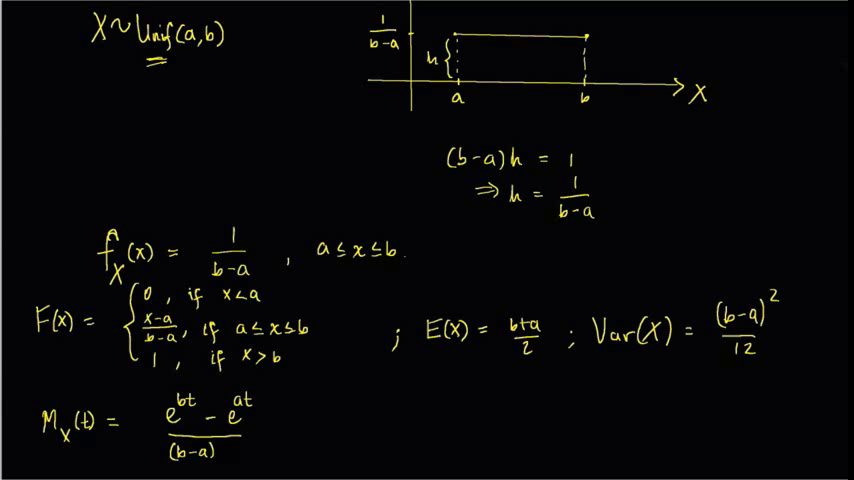 X ~ Unif(a,b)
1/(b-a)
h {
a b X
(b-a)h = 1
⇒ h = 1/(b-a)
f_X(x) = 1/(b-a) , a ≤ x ≤ b.
F(x) = { 0 , if x < a
(x-a)/(b-a) , if a ≤ x ≤ b
1 , if x > b
; E(X) = (b+a)/2 ; Var(X) = (b-a)^2/12
M_X(t) = (e^{bt} - e^{at})/(b-a)